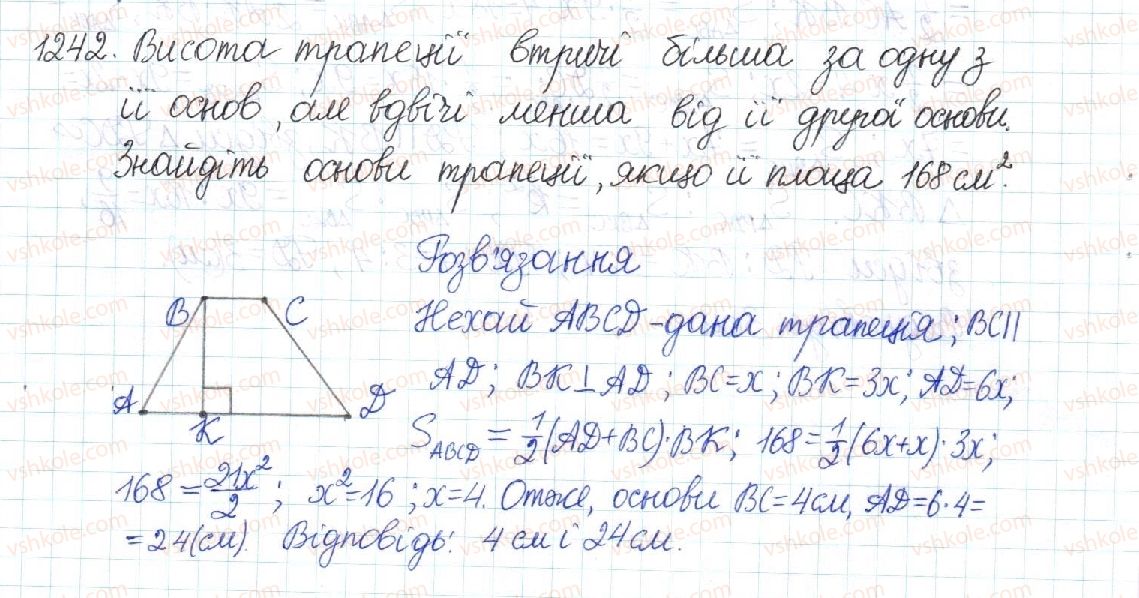 1242. Висота трапеції втричі більша за одну з
її основ, але вдвічі менша від її другої основи.
Знайдіть основи трапеції, якщо її площа 168 см².
Розв'язання
B C
A K D
Нехай ABCD - дана трапеція; BC||
AD; BK⊥AD; BC=x; BK=3x; AD=6x;
S_ABCD = 1/2(AD+BC)·BK; 168=1/2(6x+x)·3x;
168 = 21x²/2; x²=16; x=4. Отже, основи BC=4см, AD=6·4=
=24(см). Відповідь: 4 см і 24 см.
vshkole.com